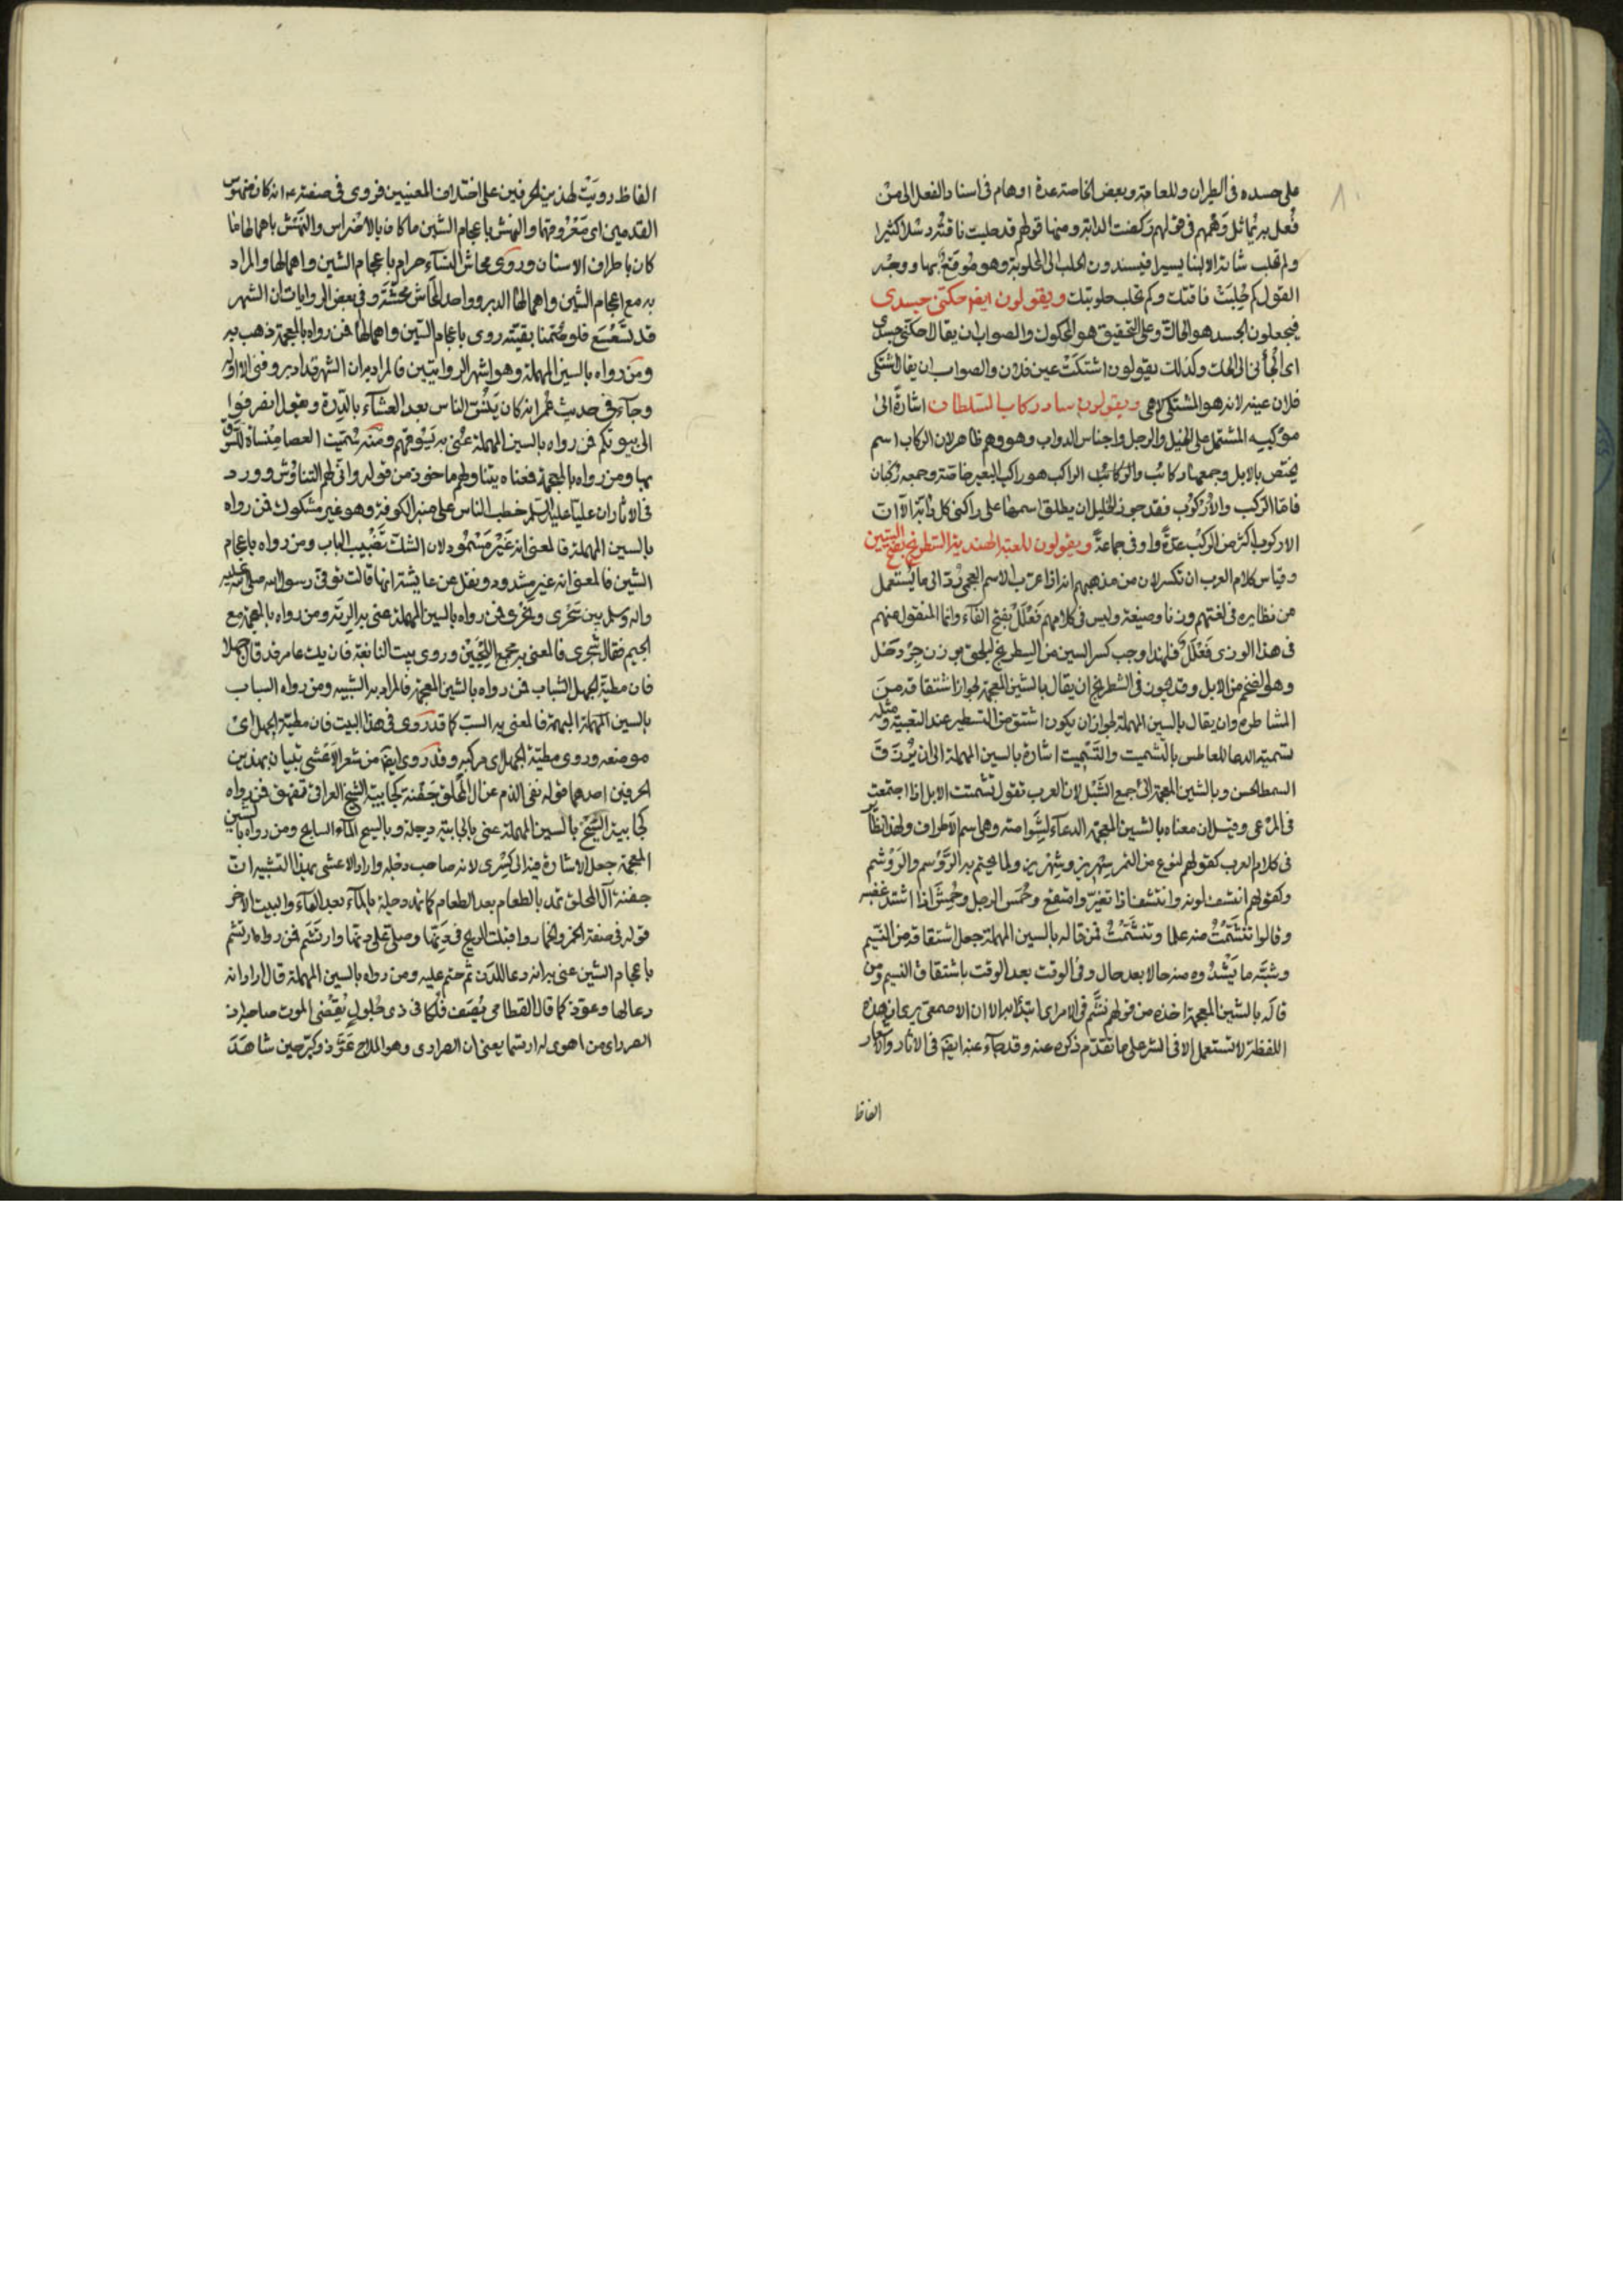 على جسده في الطيران وللعامة وبعض الخاصة عدة اوهام في اسناد الفعل الى من
فُعل به يُماثل وَهْمهم في قولهم ركضت الدابة ومنها قولهم قد حلبت ناقته رسلا كثيرا
ولم تحلب شاته الا لبنا يسيرا فيسندون الحلب الى المحلوبة وهو موقع بها ووجه
القول كم حُلِبَتْ ناقتك وكم تحلب حلوبتك ويقولون ايضا حكني جسدي
فيجعلون الجسد هو الحاك وعلى التحقيق هو المحكوك والصواب ان يقال احكني جسدي
اى الجأنى الى الحك وكذلك يقولون اشتكَتْ عين فلان والصواب ان يقال اشتكى
فلان عينه لانه هو المشتكى لاهى ويقولون سار ركاب السلطان اشارة الى
موكبه المشتمل على الخيل والرجل واجناس الدواب وهو وهم ظاهر لان الركاب اسم
يختص بالابل وجمعها ركائب والراكب هو راكب البعير خاصة وجمعه رُكبان
فاما الركب والاُرْكوب فقد جوز الخليل ان يطلق اسمهما على راكبي كل دابة الا ان
الاركوب اكثر من الركب عدة واوفى جماعة ويقولون للعبة الهندية الشطرنج بفتح الشين
وقياس كلام العرب ان تكسر لان من مذهبهم انه اذا عرب الاسم العجمى رُدّ الى ما يُستعمل
من نظايره في لغتهم وزنا وصيغة وليس في كلامهم فَعْلَلّ بفتح الفاء وانما المنقول عنهم
في هذا الوزن فِعْلَلّ فلهذا وجب كسر الشين من الشطرنج ليلحق بوزن جِرْدَحْل
وهو الضخم من الابل وقد جوز في الشطرنج ان يقال بالشين المعجمة لجواز اشتقاقه من
المشاطرة وان يقال بالسين المهملة لجواز ان يكون اشتق من التسطير عند التعبية ومثله
تسمية الدعا للعاطس بالتشميت والتسميت اشارة بالسين المهملة الى ان يُرزق
السمط الحسن وبالشين المعجمة الى جمع الشَّمْل لان العرب تقول تشمتت الابل اذا اجتمعت
في المرعى وقيل ان معناه بالشين المعجمة الدعاء لشوامته وهى اسم الاطراف ولهذا نظائر
في كلام العرب كقولهم لنوع من التمر سِهْريز وشِهْريز ولما يختم به الرَّوْسم والرَّوْشم
وكقولهم انتسف لونه وانتشف اذا تغير وامتقع وحُمس الرجل وحُمش اذا اشتد غضبه
وقالوا تنسَّمْتُ منه علما وتنشَّمْتُ فمن قاله بالسين المهملة جعل اشتقاقه من النسيم
وشبّه ما يَشْدُوه منه حالا بعد حال وفي الوقت بعد الوقت باشتقاق النسيم ومن
قاله بالشين المعجمة اخذه من قولهم نشَّم في الامر اى ابتدأ به الا ان الاصمعى يرى ان هذه
اللفظة لا تستعمل الا في الشر على ما تقدم ذكره عنه وقد جاء عنه ايضا في الآثار والاشعار
الفاظ
الفاظ رويت بهذين الحرفين على اختلاف المعنيين فروى في صفته انه كان منهوس
القدمين اى معروقهما والنهش باعجام الشين ما كان بالاضراس والنهس باهمالها ما
كان باطراف الاسنان وروى محاش النساء حرام باعجام الشين واهمالها والمراد
به مع اعجام الشين واهمالها الدبر وواحد المحاش محشّة وفي بعض الروايات ان الشهر
قد تَسَعْسَعَ فلو صُمنا بقيته روى باعجام الشين واهمالها فمن رواه بالمعجمة ذهب به
ومن رواه بالسين المهملة وهو اشهر الروايتين فالمراد به ان الشهر قد ادبر وفنى الا اقله
وجاء في حديث عُمر انه كان يَنُسّ الناس بعد العشاء بالدِّرة ويقول انصرفوا
الى بيوتكم فمن رواه بالسين المهملة عنى به يسوقهم ومنه سُمّيت العصا مِنسأة للسوق
بها ومن رواه بالمعجمة فمعناه يتناولهم ماخوذ من قوله وانّى لهم التناوُش وورد
في الآثار ان عليّا عليه السلم خطب الناس على منبر الكوفة وهو غير مشكوك فمن رواه
بالسين المهملة فالمعنى انه غَيْر مَسْمُود لان الشك تَضْبيب الباب ومن رواه باعجام
الشين فالمعنى انه غير مشدود ونقل عن عايشة انها قالت توفى رسول الله صلى الله عليه
واله وسلم بين سَحْرى ونَحْرى فمن رواه بالسين المهملة عنى به الرية ومن رواه بالمعجمة مع
الجيم فقال شَجْرى فالمعنى به مجمع اللَّحْيَيْن وروى بيت النابغة فان يك عامر قد قال جهلا
فان مطية الجهل الشباب فمن رواه بالشين المعجمة فالمراد به الشبيبة ومن رواه السباب
بالسين المهملة المبهمة فالمعنى به السب كما قد رَوى في هذا البيت فان مظنة الجهل اى
موضعه وروى مطية الجهل اى مركبه وقد روى ايضا من شعر الاعشى بيتان بهذين
الحرفين احدهما قوله نفى الذم عن آل المحلق جَفْنة كجابية الشيخ العراقى تفهق فمن رواه
كجابية السَّيْح بالسين المهملة عنى بالجابية دجلة وبالسيح الماء السايح ومن رواه بالشين
المعجمة جعل الاشارة فيه الى كِسْرى لانه صاحب دجلة واراد الاعشى بهذا التشبيه ان
جفنة آل المحلق تمد بالطعام بعد الطعام كما تمد دجلة بالماء بعد الماء والبيت الآخر
قوله في صفة الخمر والخمار وقابلت الريح في دَنِّها وصلى على دنها وارتَسَم فمن رواه ارتشم
باعجام الشين عنى به انه دعا للدَّن ثم ختم عليه ومن رواه بالسين المهملة قال اراد انه
دعا لها وعوّذ كما قال القطامى يُصف فُلكا في ذى جُلول يُقضّى الموت صاحبه اذا
الصرارى من اهواله ارتسما يعنى ان الصرارى وهو الملاح عَوَّذ وكبّر حين شاهَد